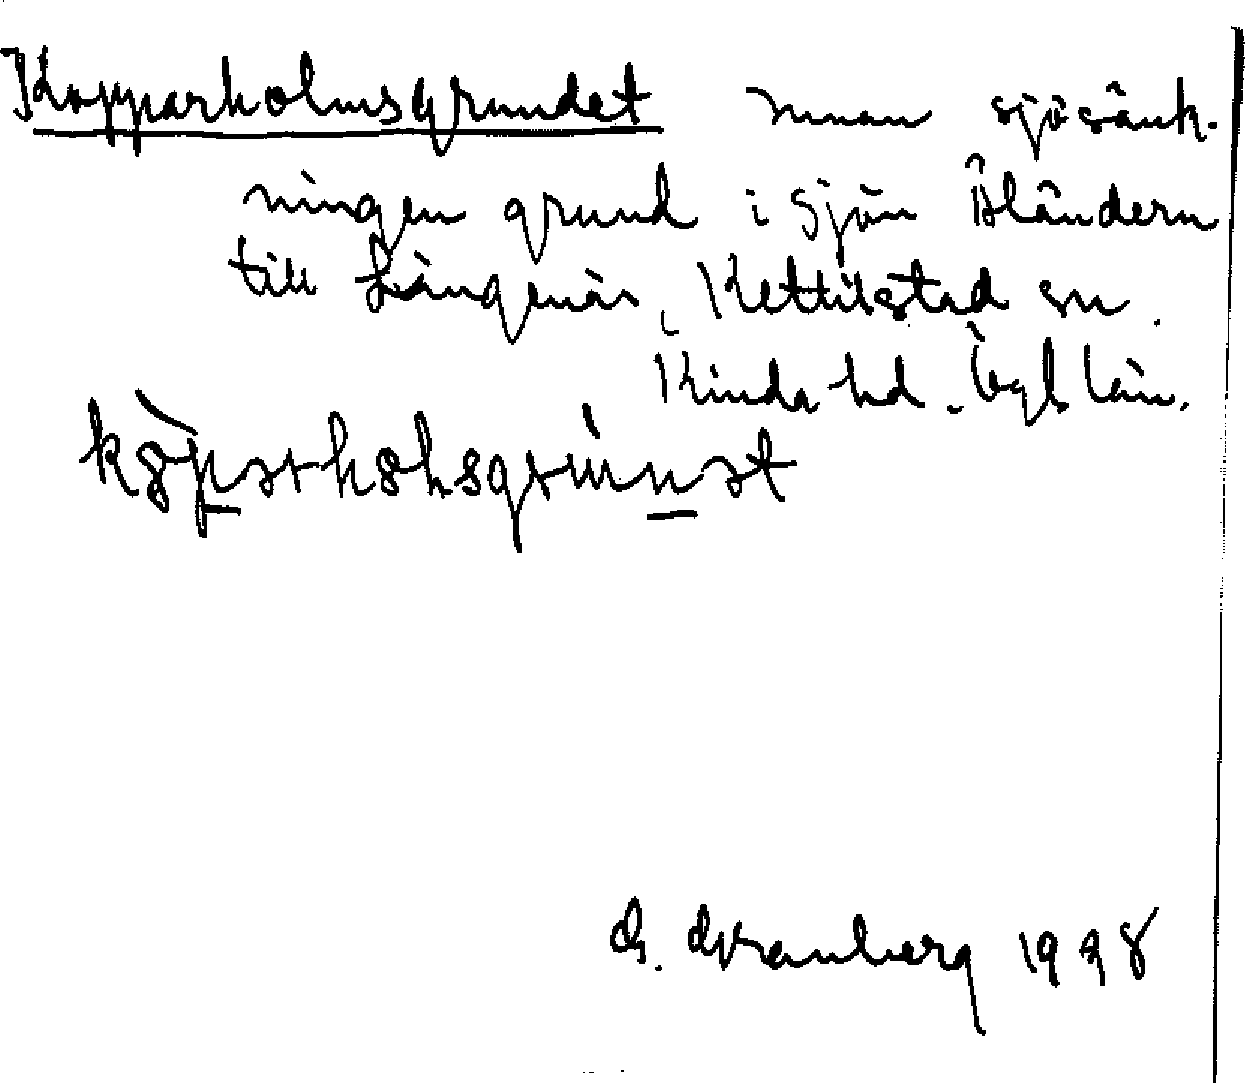 Kopparholmsgrundet innan sjösänk-
ningen grund i sjön Åländern
till Långenäs, Kettilstad sn.
Kinda hd. Ögl. län.
G. Granberg 1928